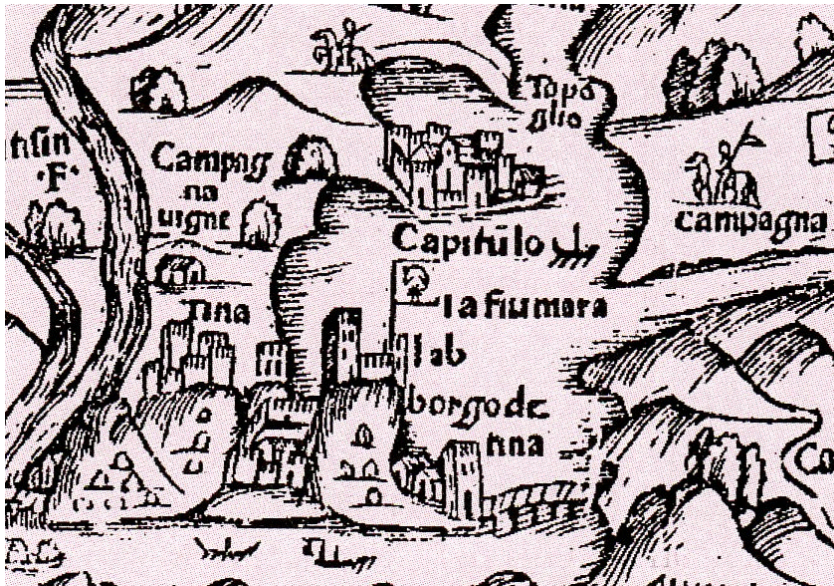 Topa
glio
tisin
·F·
Campag
na
uigne
campagna
Capitūlo
la fiumara
Tina
lab
borgo de
tina
Ca